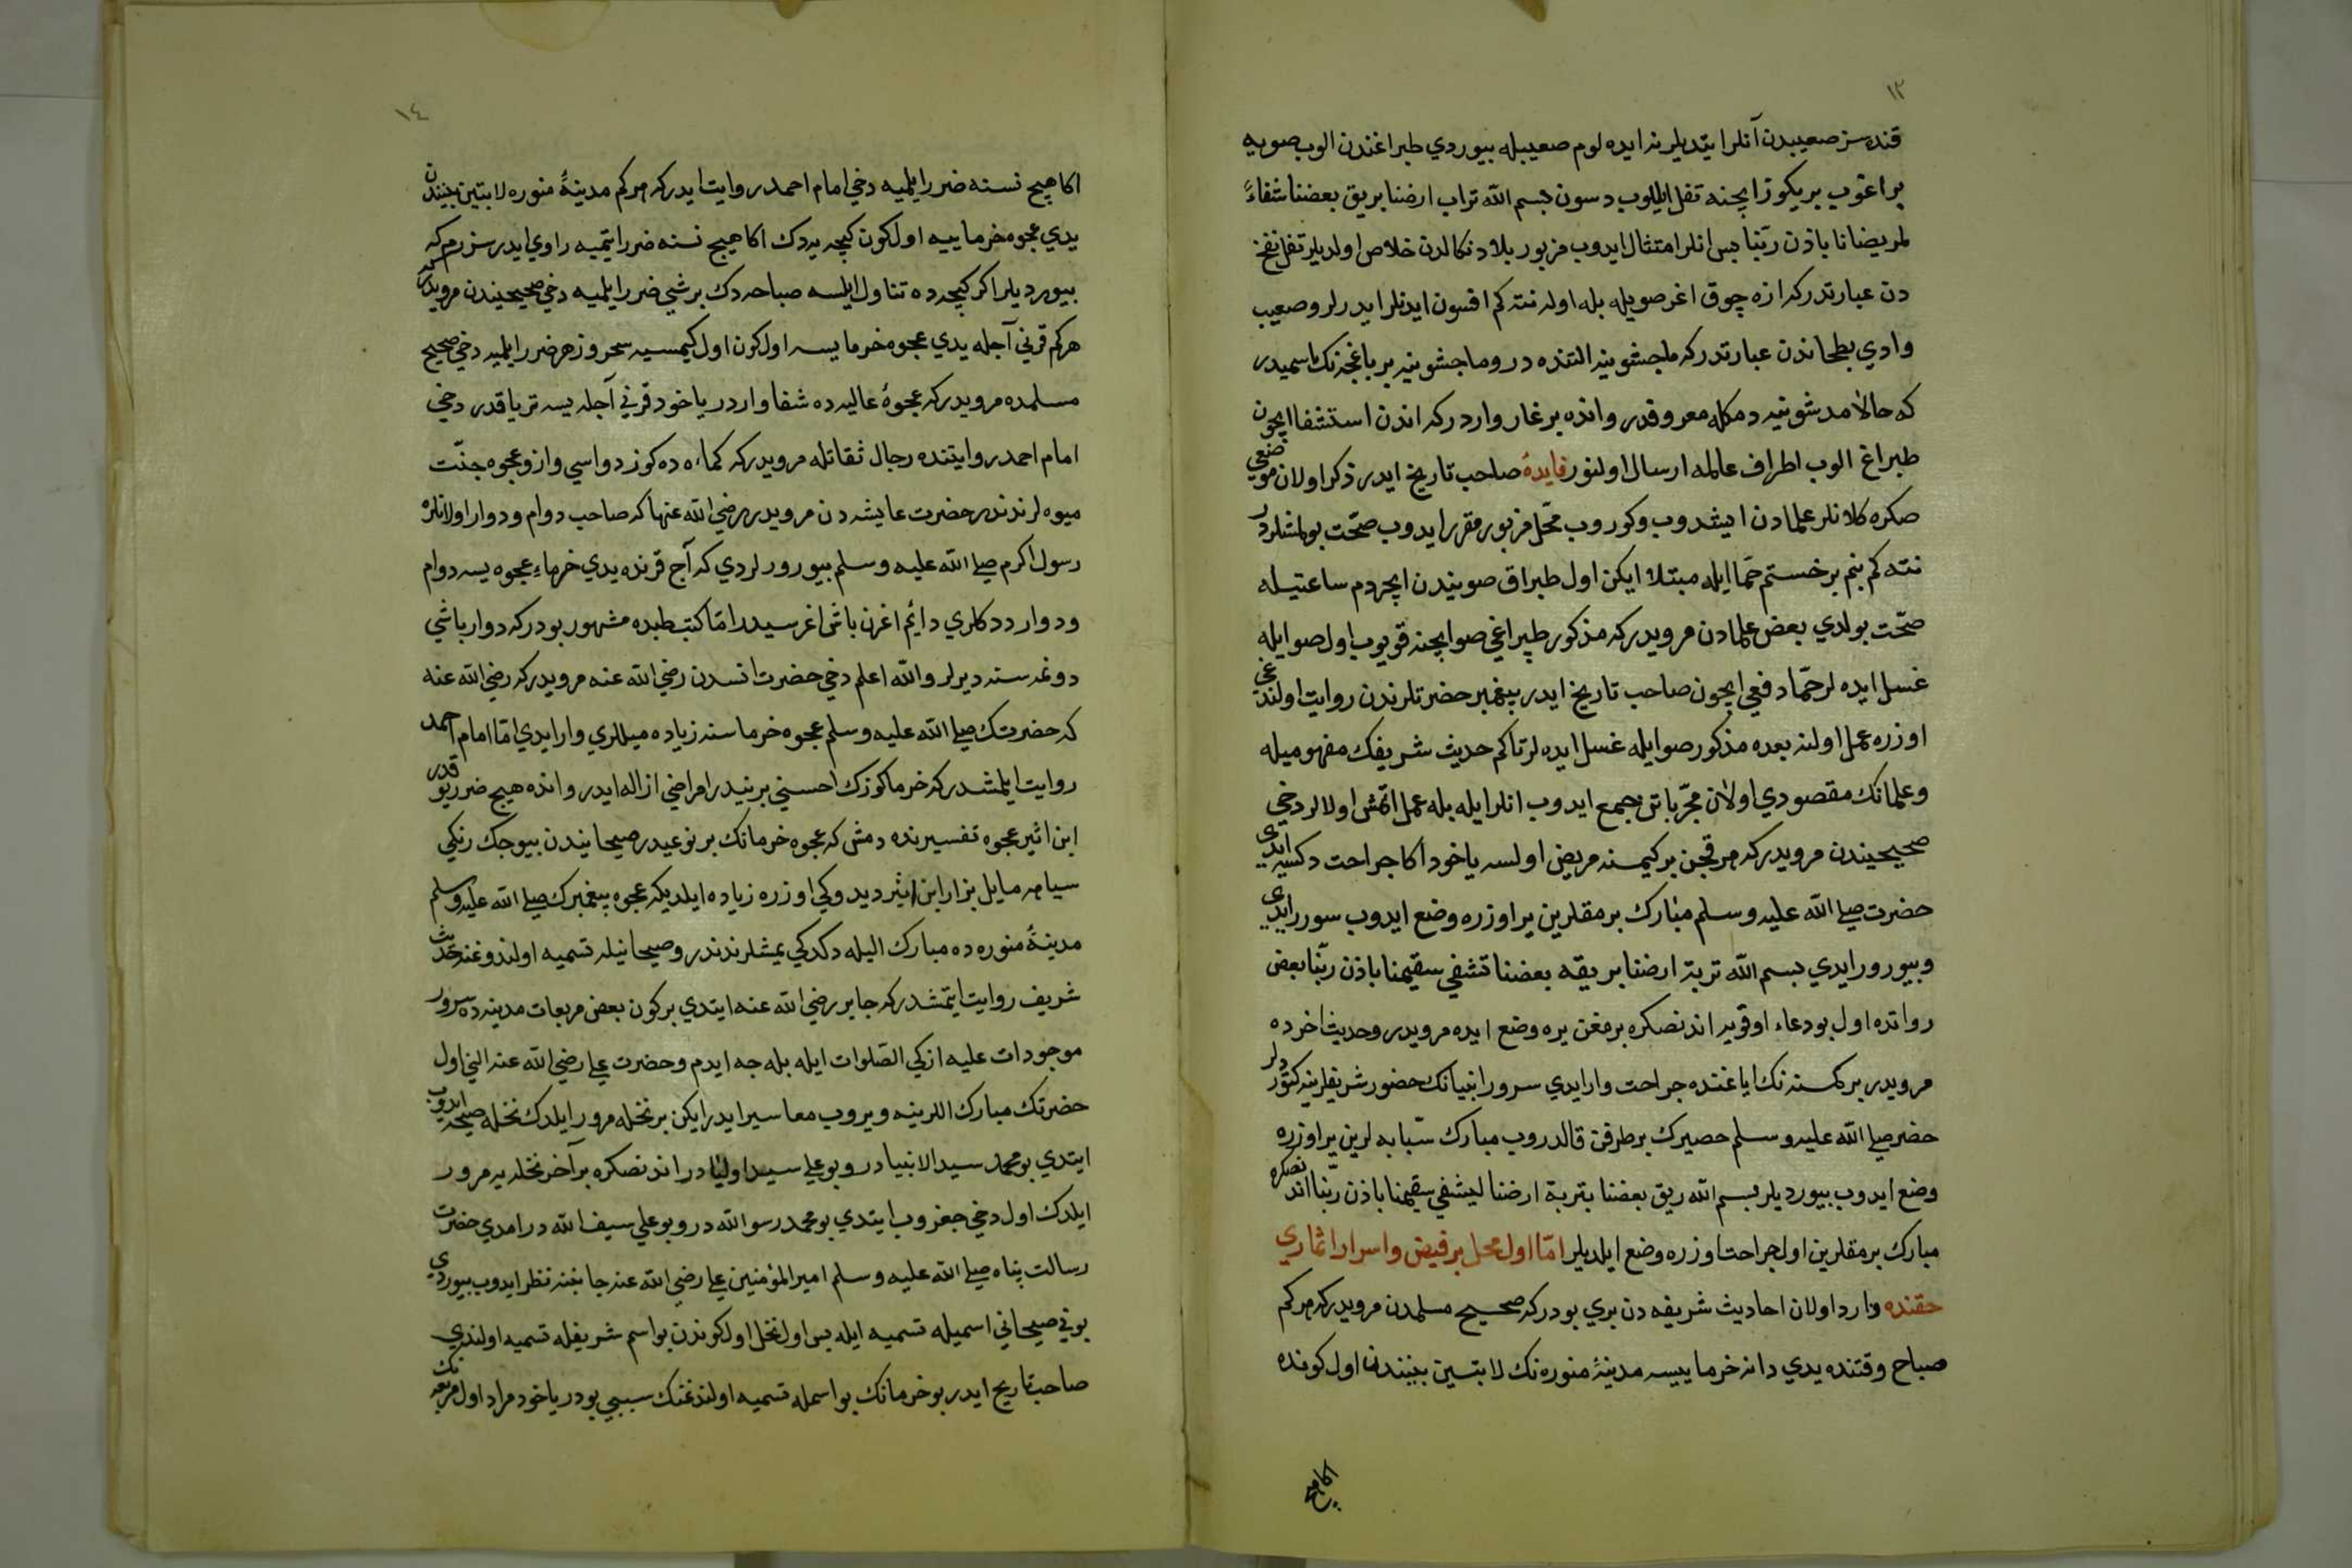 ١٣
قنده سز صعيبدن آنلر ايتديلر نه ايده لوم صعيبله بيوردي طبراغندن الوب صويه
براغوب بريكوز ايچنه تفل ايليوب دسون بسم الله تراب ارضنا بريق بعضنا شفاءً
لمريضنا باذن ربّنا پس انلر امتثال ايدوب مزبور بلا دنكالدن خلاص اولديلر تفل نفخ
دن عبارتدركه ازه چوق اغز صويله بله اوله نته كم افسون ايدنلر ايدرلر و صعيب
وادي بطحاندن عبارتدركه ماجشونيه التنده در و ماجشونيه بر باغچه نك اسميدر
كه حالا مدشونيه دمكله معروفدر و انده بر غار واردركه اندن استشفا ايچون
طبراغ الوب اطراف عالمه ارسال اولنور فايدۀ صاحب تاريخ ايدر ذكر اولان موضعي
صكره كلانلر علمادن ايشدوب و كوروب محّل مزبور مقرر ايدوب صحّت بولمشلردر
نته كم بنم بر خستم حمّا ايله مبتلا ايكن اول طبراق صويندن ايچردم ساعتيله
صحّت بولدي بعض علمادن مرويدركه مذكور طپراغي صو ايچنه قويوب اول صو ايله
غسل ايده لر حمّا دفعي ايچون صاحب تاريخ ايدر پيغمبر حضرتلرندن روايت اولندغي
اوزره عمل اولنه بعده مذكور صو ايله غسل ايده لر تاكم حديث شريفك مفهوميله
و علمانك مقصودي اولان مجرّباتي جمع ايدوب انلر ايله بله عمل اتمش اولالر دخي
صحيحيندن مرويدركه هر قچن بر كيمسنه مريض اولسه ياخود اكا جراحت دكسه ايدي
حضرت صلى الله عليه وسلم مبارك برمقلرين ير اوزره وضع ايدوب سورر ايدي
و بيورر ايدي بسم الله تربة ارضنا بريقه بعضنا تشفي سقيمنا باذن ربّنا بعض
رواتده اول بو دعاء اوقويه اندنصكره برمغن يره وضع ايده مرويدر و حديث اخرده
مرويدر بر كمسنه نك اياغنده جراحت وار ايدي سرور انبيانك حضور شريفلرينه كتورديلر
حضر صلى الله عليه وسلم حصيرك بر طرفن قالدروب مبارك سبّابه لرين ير اوزره
وضع ايدوب بيورديلر بسم الله ريق بعضنا بتربة ارضنا ليشفي سقيمنا باذن ربّنا اندنصكره
مبارك برمقلرين اول جراحت اوزره وضع ايلديلر امّا اول محل پر فيض و اسرار اثماري
حقنده وارد اولان احاديث شريفه دن بري بودركه صحيح مسلمدن مرويدركه هر كم
صباح وقتنده يدي دانه خرما ييسه مدينۀ منوره نك لابتين بيننندن اول كونده
اكا هيچ
١٤
اكا هيچ نسنه ضرر ايلميه دخي امام احمد روايت ايدركه هر كم مدينۀ منوره لابتين بيننندن
يدي عجوه خرما ييه اول كون كيچه يه دك اكا هيچ نسنه ضرر ايتميه راوي ايدر سزرم كه
بيورديلر اكر كيچه ده تناول ايلسه صباحه دك بر شي ضرر ايلميه دخي صحيحيندن مرويدركه
هركم قرني آجله يدي عجوه خرما يسه اول كون اول كيمسيه سحر و زهر ضرر ايلميه دخي صحيح
مسلمده مرويدركه عجوۀ عاليه ده شفا واردر ياخود قرني آجله يسه ترياقدر دخي
امام احمد روايتنده رجال ثقاتله مرويدركه كماءه ده كوز دواسي وار و عجوه جنّت
ميوه لرندندر حضرت عايشه دن مرويدر رضي الله عنها كه صاحب دوام و دوار اولانلره
رسول اكرم صلى الله عليه وسلم بيورورلردي كه آج قرنده يدي خرماءِ عجوه يسه دوام
و دوار ددكلري دائم اغرن باش اغرسيدر امّا كتب طبده مشهور بودركه دوار باشي
دونمه سنه ديرلر والله اعلم دخي حضرت انسدن رضي الله عنه مرويدركه رضي الله عنه
كه حضرتك صلى الله عليه وسلم عجوه خرماسنه زياده ميللري وار ايدي امّا امام احمد
روايت ايلمشدركه خرما كوزك احسني برنيدر امراضي ازاله ايدر و انده هيچ ضرر يوقدر
ابن اثير عجوه تفسيرنده دمش كه عجوه خرمانك بر نوعيدر صيحانيندن بيوجك رنكي
سياهه مايل بزار ابن اثير ديدوكي اوزره زياده ايلديكه عجوه پيغمبرك صلى الله عليه وسلم
مدينۀ منوره ده مبارك اليله دكدكي يمشلرندندر و صيحانيله تسميه اولندوغنه حديث
شريف روايت ايتمشدركه جابر رضي الله عنه ايتدي بر كون بعض مربعات مدينه ده سرور
موجودات عليه ازكي الصّلوات ايله بله جه ايدم و حضرت علي رضي الله عنه الني اول
حضرتك مبارك اللرينه ويروب معا سير ايدر ايكن بر نخله مرور ايلدك نخله صيحه ايدوب
ايتدي بو محمد سيد الانبيا در و بو علي سيد اوليا در اندنصكره بر آخر نخله يه مرور
ايلدك اول دخي جغروب ايتدي بو محمد رسو الله در و بو علي سيف الله در امدي حضرت
رسالت پناه صلى الله عليه وسلم امير المؤمنين علي رضي الله عنه جانبنه نظر ايدوب بيوردي
بوني صيحاني اسميله تسميه ايله پس اول نخل اول كوندن بو اسم شريفله تسميه اولندي
صاحب تاريخ ايدر بو خرمانك بو اسمله تسميه اولندغنك سببي بودر ياخود مراد اول مربعه نك